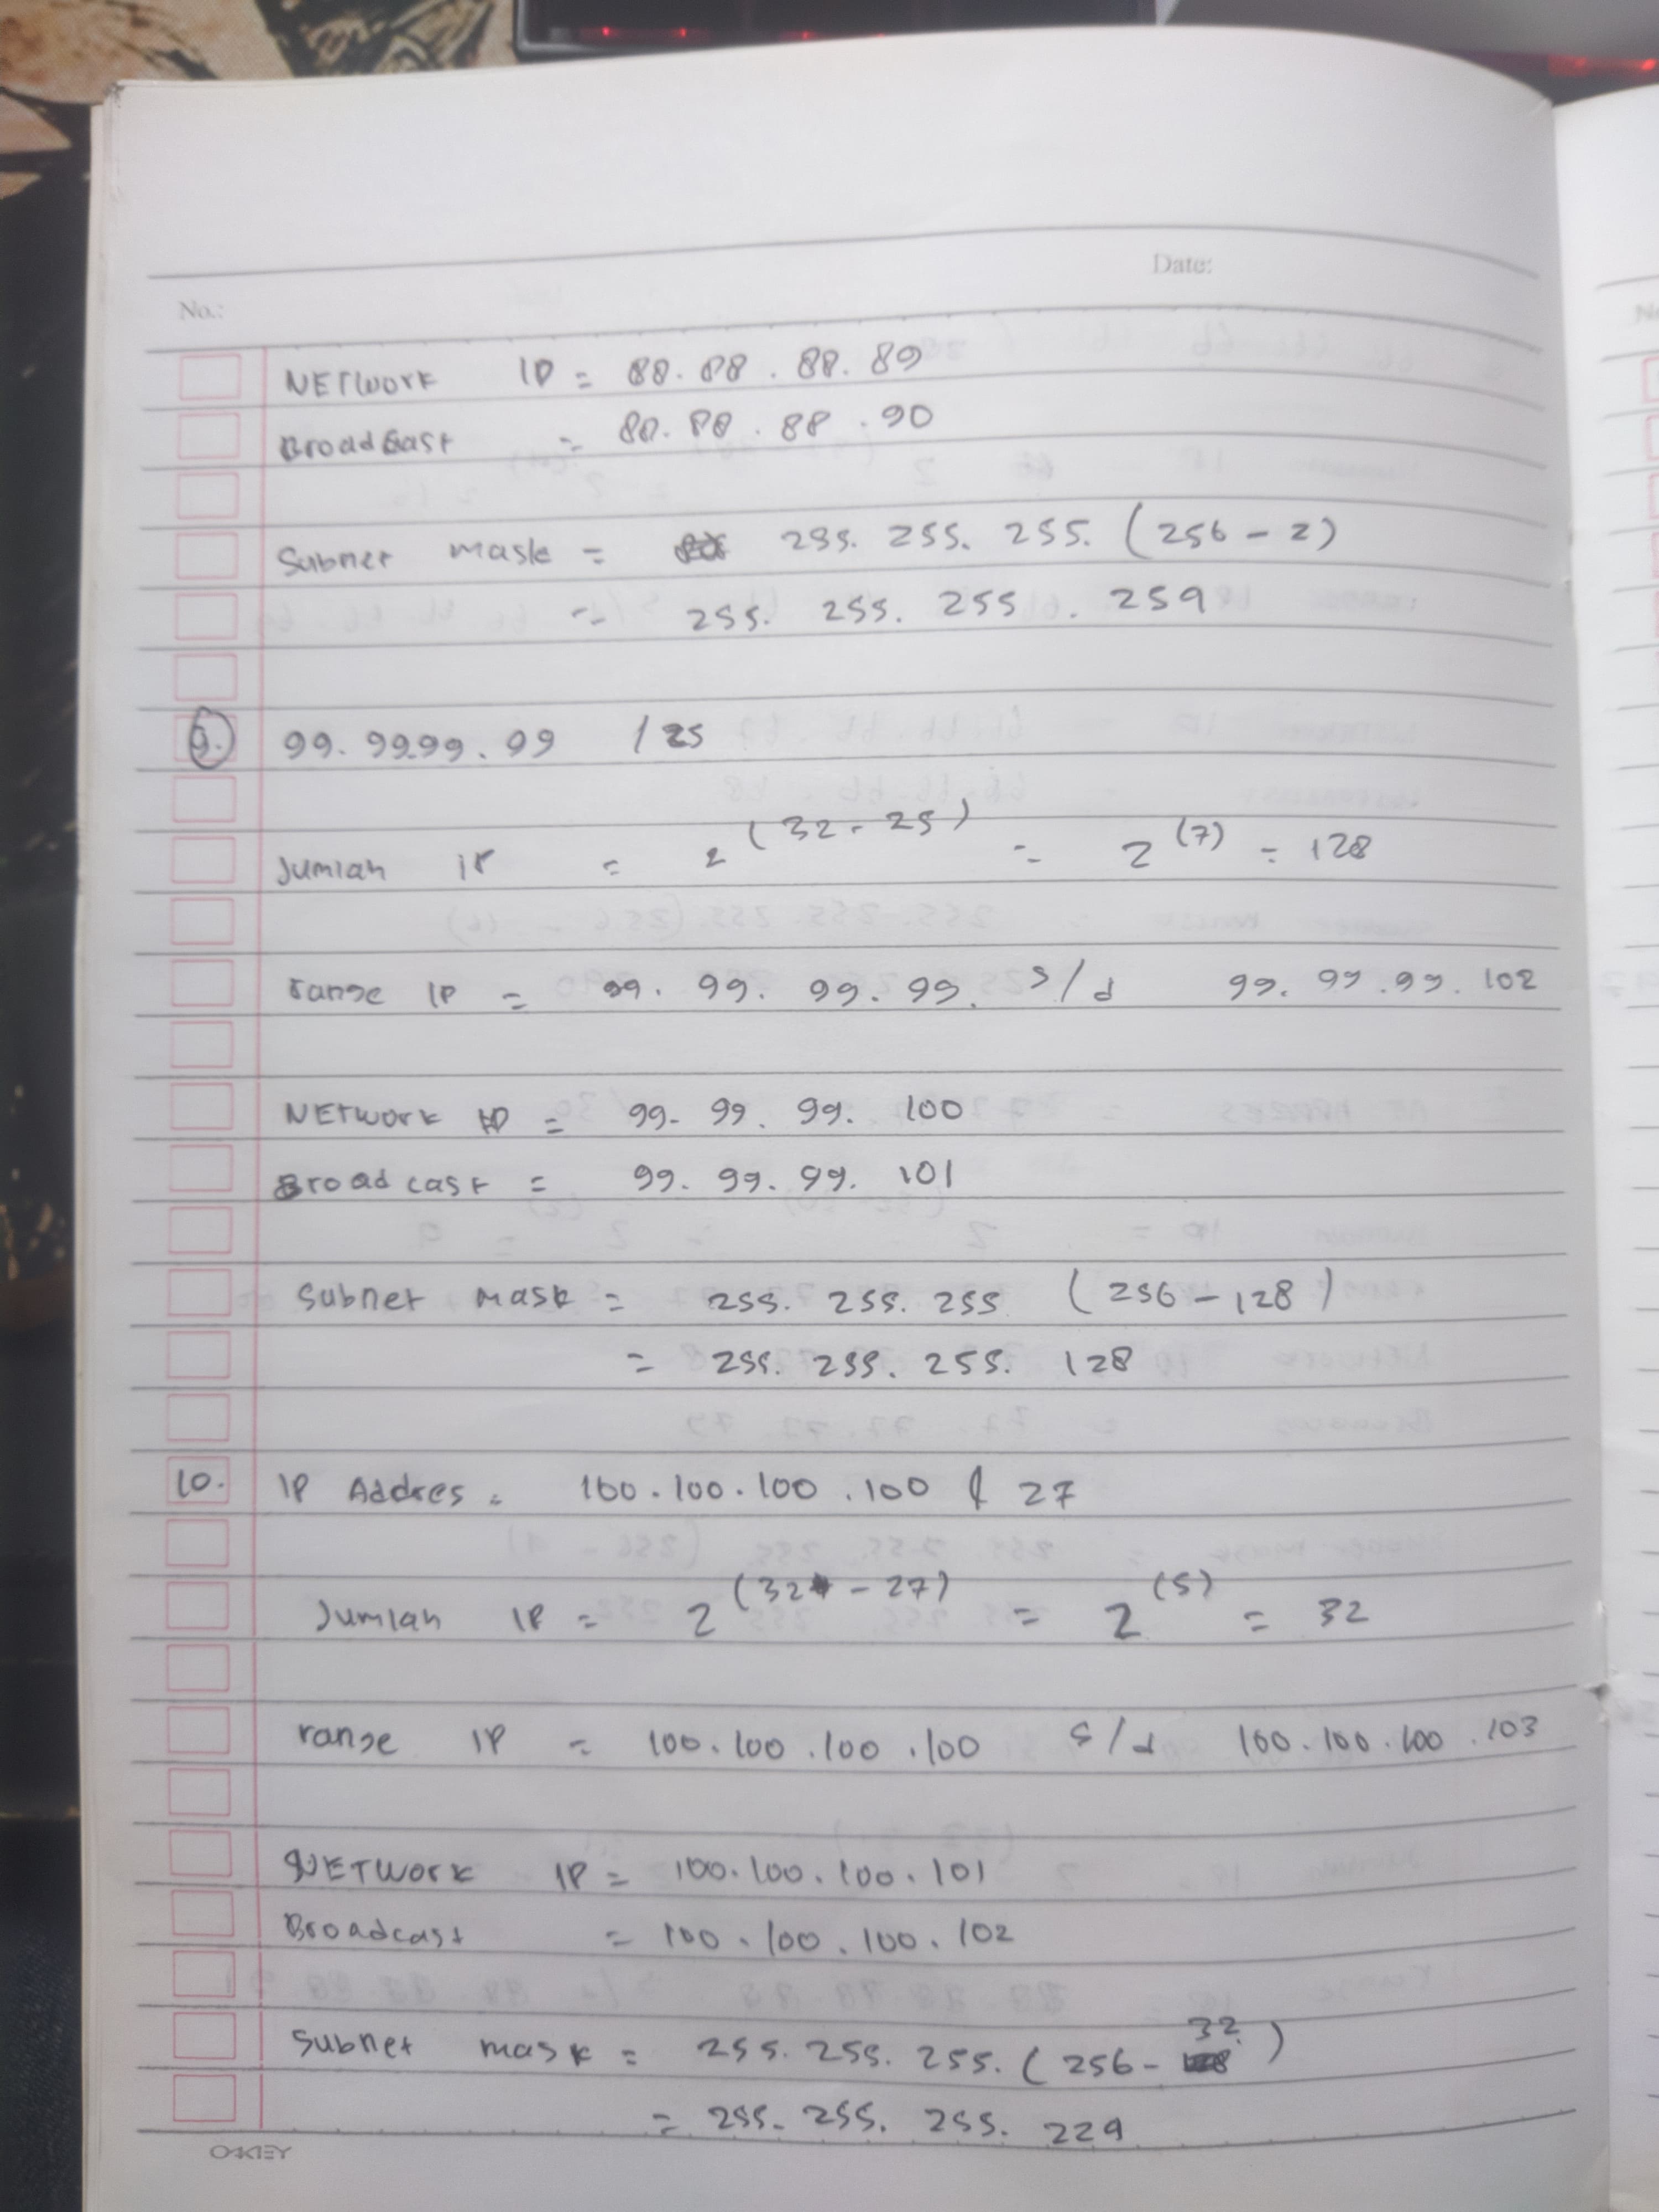 Date:
No.:
NETWORK IP = 88.88.88.89
Broadcast = 88.88.88.90
Subnet mask = 255.255.255.(256-2)
= 255.255.255.254
9. 99.99.99.99 /25
Jumlah IP = 2 (32-25) = 2 (7) = 128
range IP = 99.99.99.99. s/d 99.99.99.102
NETWORK IP = 99.99.99.100
Broadcast = 99.99.99.101
Subnet mask = 255.255.255 (256-128)
= 255.255.255.128
10. IP Addres = 100.100.100.100 / 27
Jumlah IP = 2 (32-27) = 2 (5) = 32
range IP = 100.100.100.100 s/d 100.100.100.103
NETWORK IP = 100.100.100.101
Broadcast = 100.100.100.102
Subnet mask = 255.255.255.(256-32)
= 255.255.255.224
OAKEY